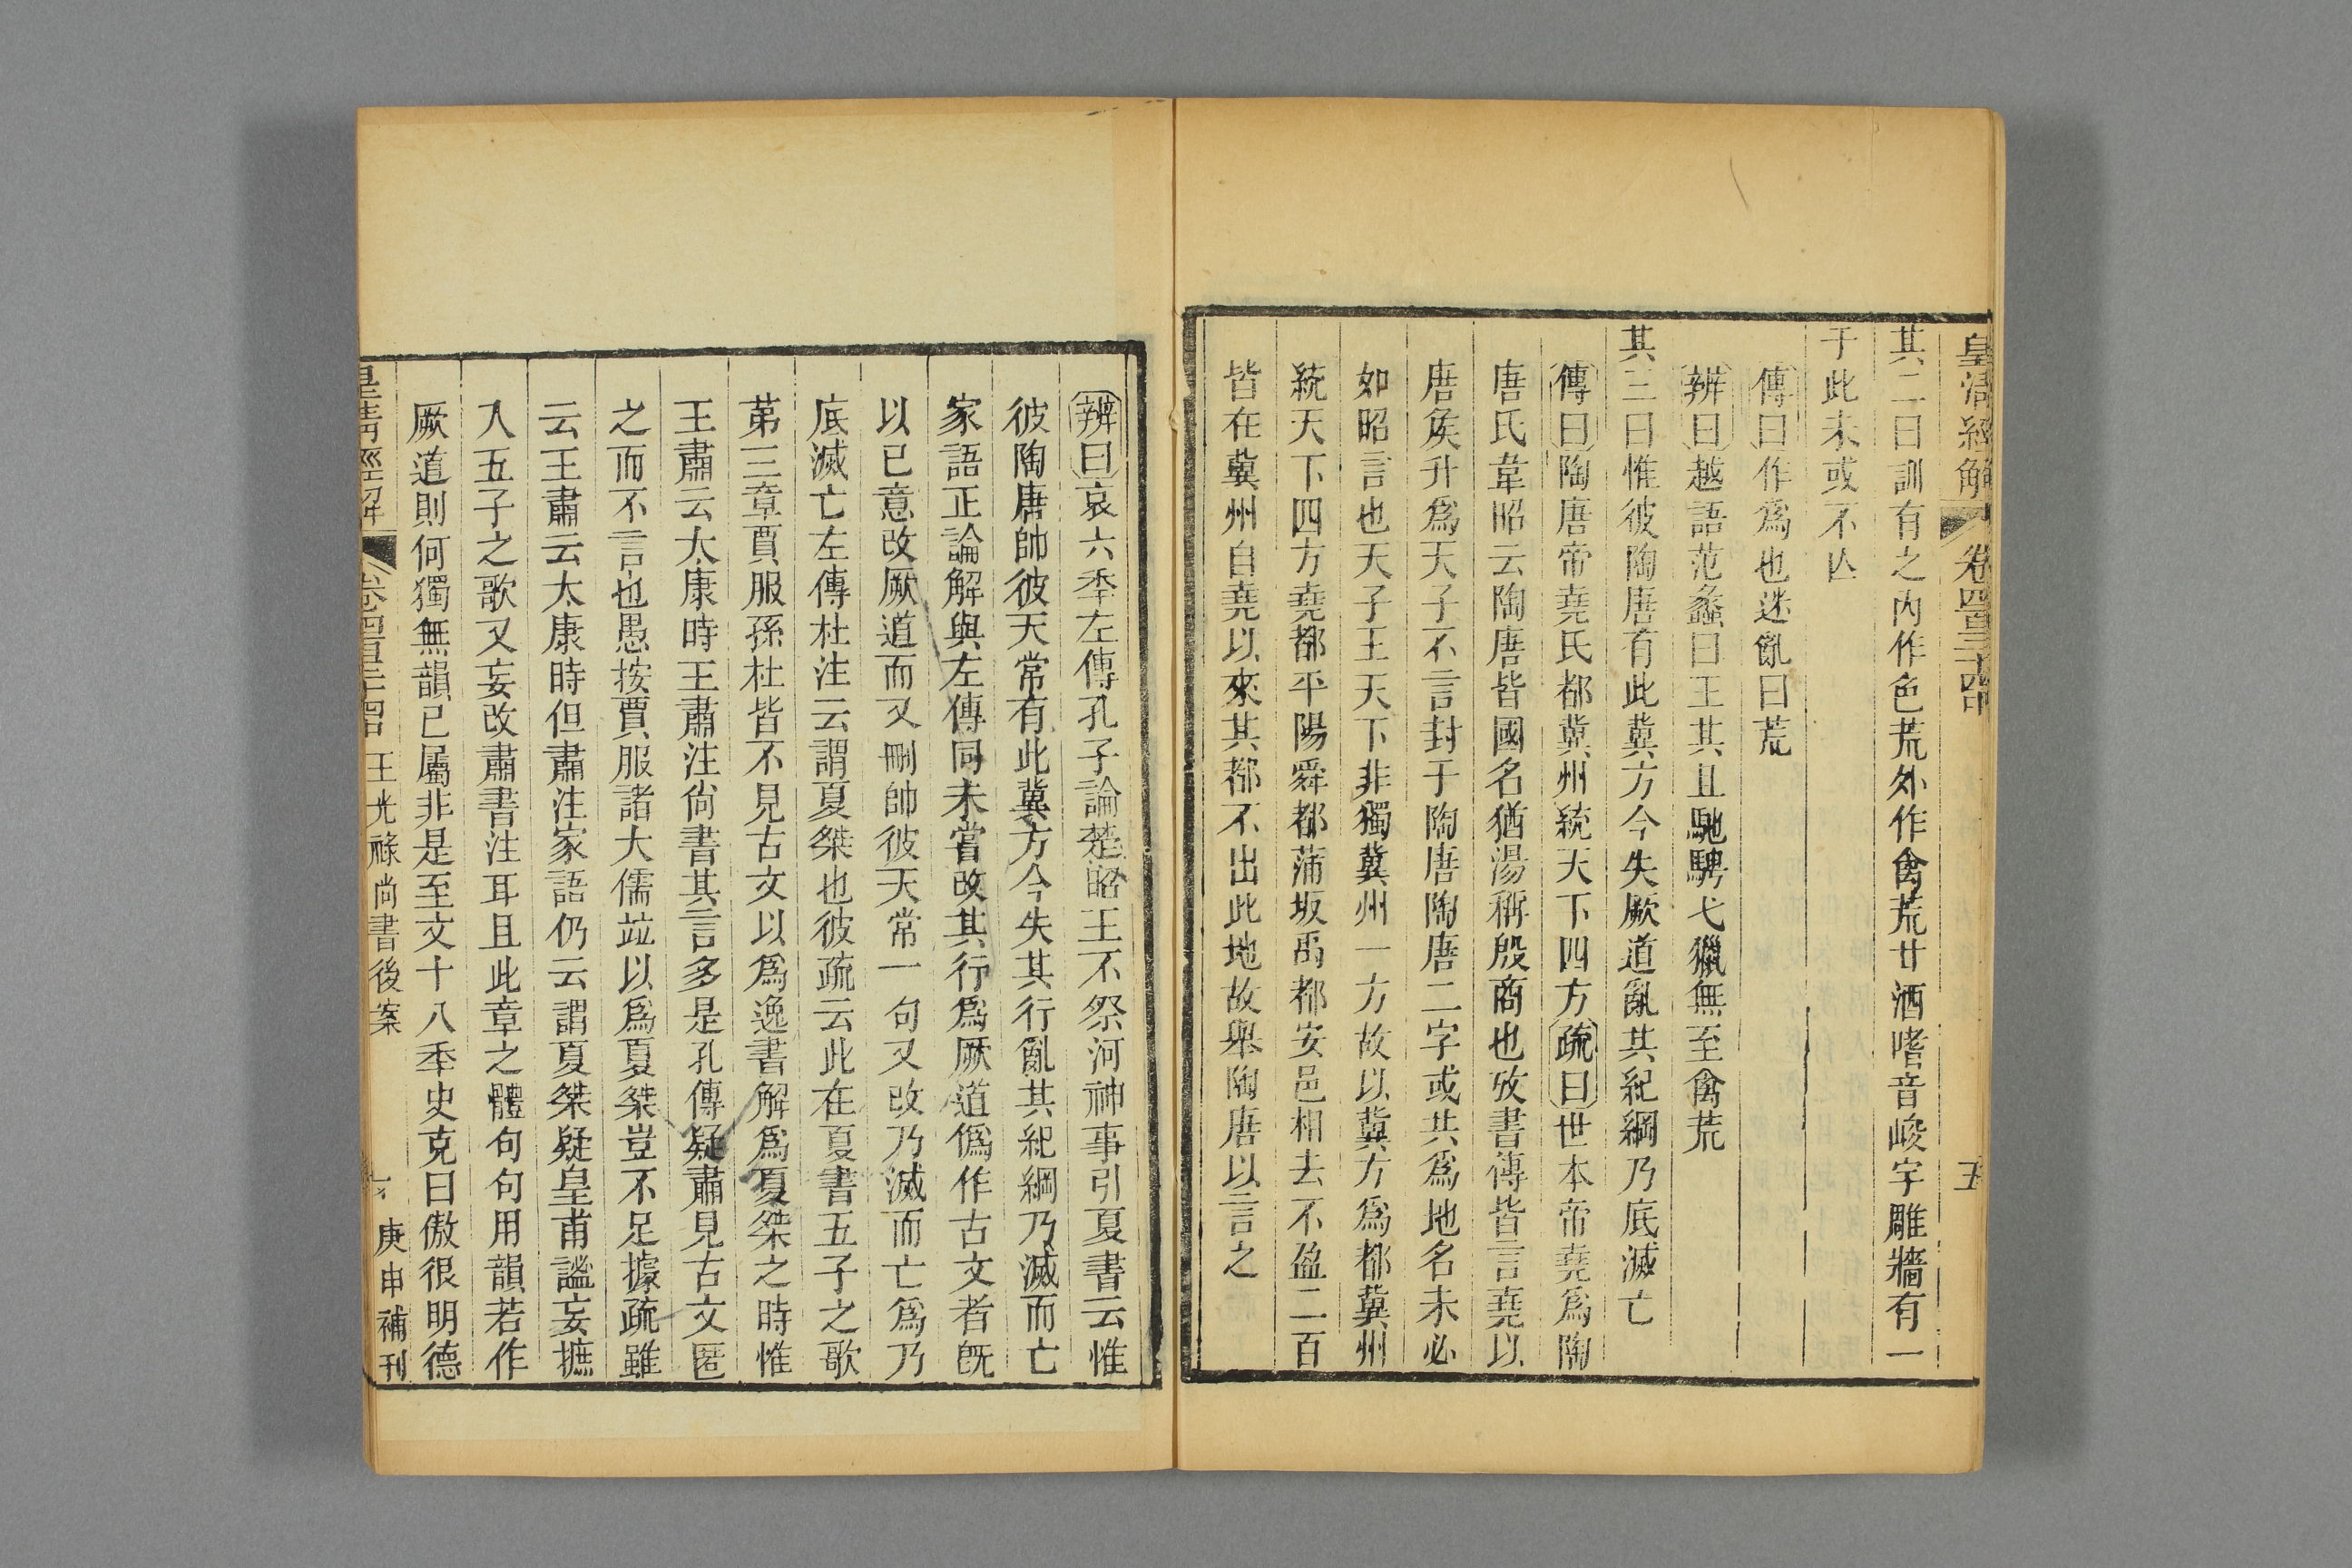 皇清經解 卷四百三十四 五
其二曰訓有之內作色荒外作禽荒甘酒嗜音峻宇雕牆有一
于此未或不亾
傳曰作爲也迷亂曰荒
辨曰越語范蠡曰王其且馳騁弋獵無至禽荒
其三曰惟彼陶唐有此冀方今失厥道亂其紀綱乃底滅亡
傳曰陶唐帝堯氏都冀州統天下四方疏曰世本帝堯爲陶
唐氏韋昭云陶唐皆國名猶湯稱殷商也攷書傳皆言堯以
唐矦升爲天子不言封于陶唐陶唐二字或共爲地名未必
如昭言也天子王天下非獨冀州一方故以冀方爲都冀州
統天下四方堯都平陽舜都蒲坂禹都安邑相去不盈二百
皆在冀州自堯以來其都不出此地故舉陶唐以言之
辨曰哀六秊左傳孔子論楚昭王不祭河神事引夏書云惟
彼陶唐帥彼天常有此冀方今失其行亂其紀綱乃滅而亡
家語正論解與左傳同未嘗改其行爲厥道僞作古文者旣
以已意改厥道而又刪帥彼天常一句又改乃滅而亡爲乃
底滅亡左傳杜注云謂夏桀也彼疏云此在夏書五子之歌
苐三章賈服孫杜皆不見古文以爲逸書解爲夏桀之時惟
王肅云太康時王肅注尙書其言多是孔傳疑肅見古文匿
之而不言也愚按賈服諸大儒竝以爲夏桀豈不足據疏雖
云王肅云太康時但肅注家語仍云謂夏桀疑皇甫謐妄摭
入五子之歌又妄改肅書注耳且此章之體句句用韻若作
厥道則何獨無韻已屬非是至文十八秊史克曰傲很明德
皇清經解 卷四百三十四 王光祿尙書後案 庚申補刊